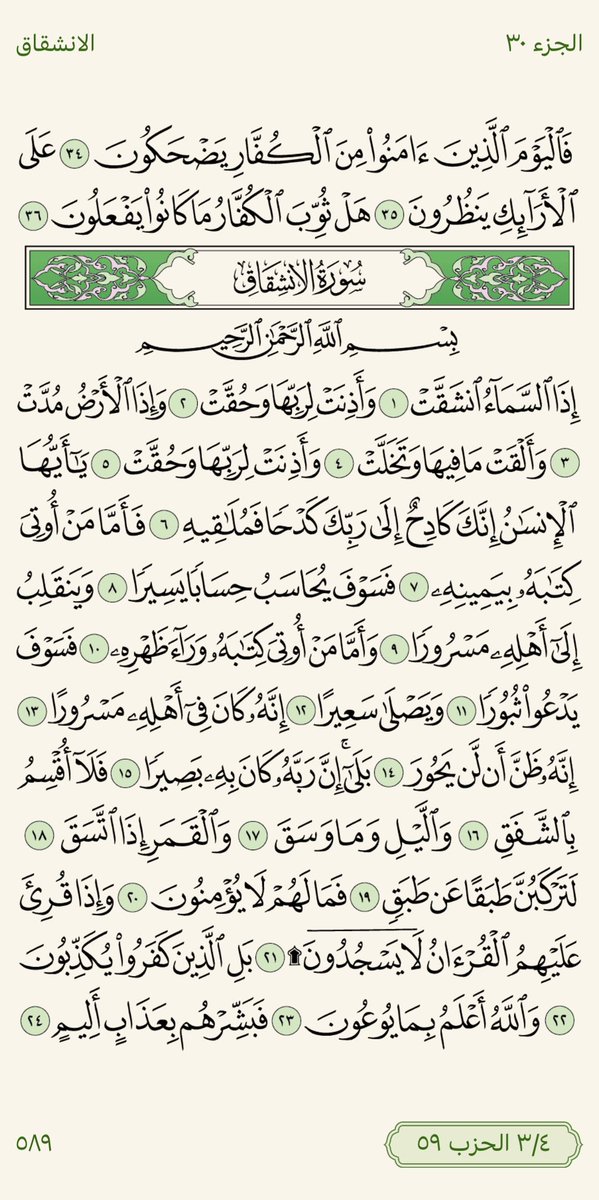 الجزء ٣٠
الانشقاق
فَٱلْيَوْمَ ٱلَّذِينَ ءَامَنُوا۟ مِنَ ٱلْكُفَّارِ يَضْحَكُونَ ٣٤ عَلَى
ٱلْأَرَآئِكِ يَنظُرُونَ ٣٥ هَلْ ثُوِّبَ ٱلْكُفَّارُ مَا كَانُوا۟ يَفْعَلُونَ ٣٦
سُورَةُ الانشِقَاقِ
بِسْمِ ٱللَّهِ ٱلرَّحْمَٰنِ ٱلرَّحِيمِ
إِذَا ٱلسَّمَآءُ ٱنشَقَّتْ ١ وَأَذِنَتْ لِرَبِّهَا وَحُقَّتْ ٢ وَإِذَا ٱلْأَرْضُ مُدَّتْ
٣ وَأَلْقَتْ مَا فِيهَا وَتَخَلَّتْ ٤ وَأَذِنَتْ لِرَبِّهَا وَحُقَّتْ ٥ يَٰٓأَيُّهَا
ٱلْإِنسَٰنُ إِنَّكَ كَادِحٌ إِلَىٰ رَبِّكَ كَدْحًا فَمُلَٰقِيهِ ٦ فَأَمَّا مَنْ أُوتِىَ
كِتَٰبَهُۥ بِيَمِينِهِۦ ٧ فَسَوْفَ يُحَاسَبُ حِسَابًا يَسِيرًا ٨ وَيَنقَلِبُ
إِلَىٰٓ أَهْلِهِۦ مَسْرُورًا ٩ وَأَمَّا مَنْ أُوتِىَ كِتَٰبَهُۥ وَرَآءَ ظَهْرِهِۦ ١٠ فَسَوْفَ
يَدْعُوا۟ ثُبُورًا ١١ وَيَصْلَىٰ سَعِيرًا ١٢ إِنَّهُۥ كَانَ فِىٓ أَهْلِهِۦ مَسْرُورًا ١٣
إِنَّهُۥ ظَنَّ أَن لَّن يَحُورَ ١٤ بَلَىٰٓۚ إِنَّ رَبَّهُۥ كَانَ بِهِۦ بَصِيرًا ١٥ فَلَآ أُقْسِمُ
بِٱلشَّفَقِ ١٦ وَٱلَّيْلِ وَمَا وَسَقَ ١٧ وَٱلْقَمَرِ إِذَا ٱتَّسَقَ ١٨
لَتَرْكَبُنَّ طَبَقًا عَن طَبَقٍ ١٩ فَمَا لَهُمْ لَا يُؤْمِنُونَ ٢٠ وَإِذَا قُرِئَ
عَلَيْهِمُ ٱلْقُرْءَانُ لَا يَسْجُدُونَ ۩ ٢١ بَلِ ٱلَّذِينَ كَفَرُوا۟ يُكَذِّبُونَ
٢٢ وَٱللَّهُ أَعْلَمُ بِمَا يُوعُونَ ٢٣ فَبَشِّرْهُم بِعَذَابٍ أَلِيمٍ ٢٤
٣/٤ الحزب ٥٩
٥٨٩